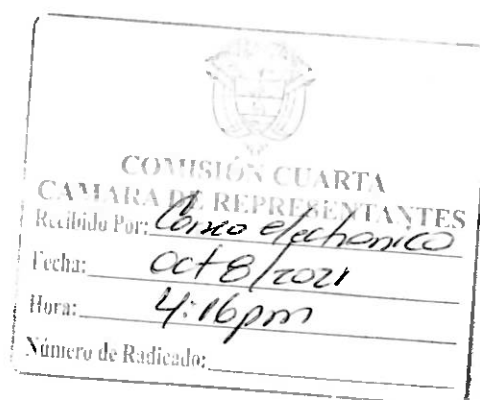 COMISIÓN CUARTA
CAMARA DE REPRESENTANTES
Recibido Por: Correo electronico
Fecha: oct 8/2021
Hora: 4:16pm
Número de Radicado: